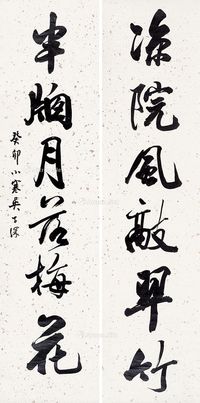 涼院風敲翠竹
半牕月落梅花
癸卯小寒吳子深